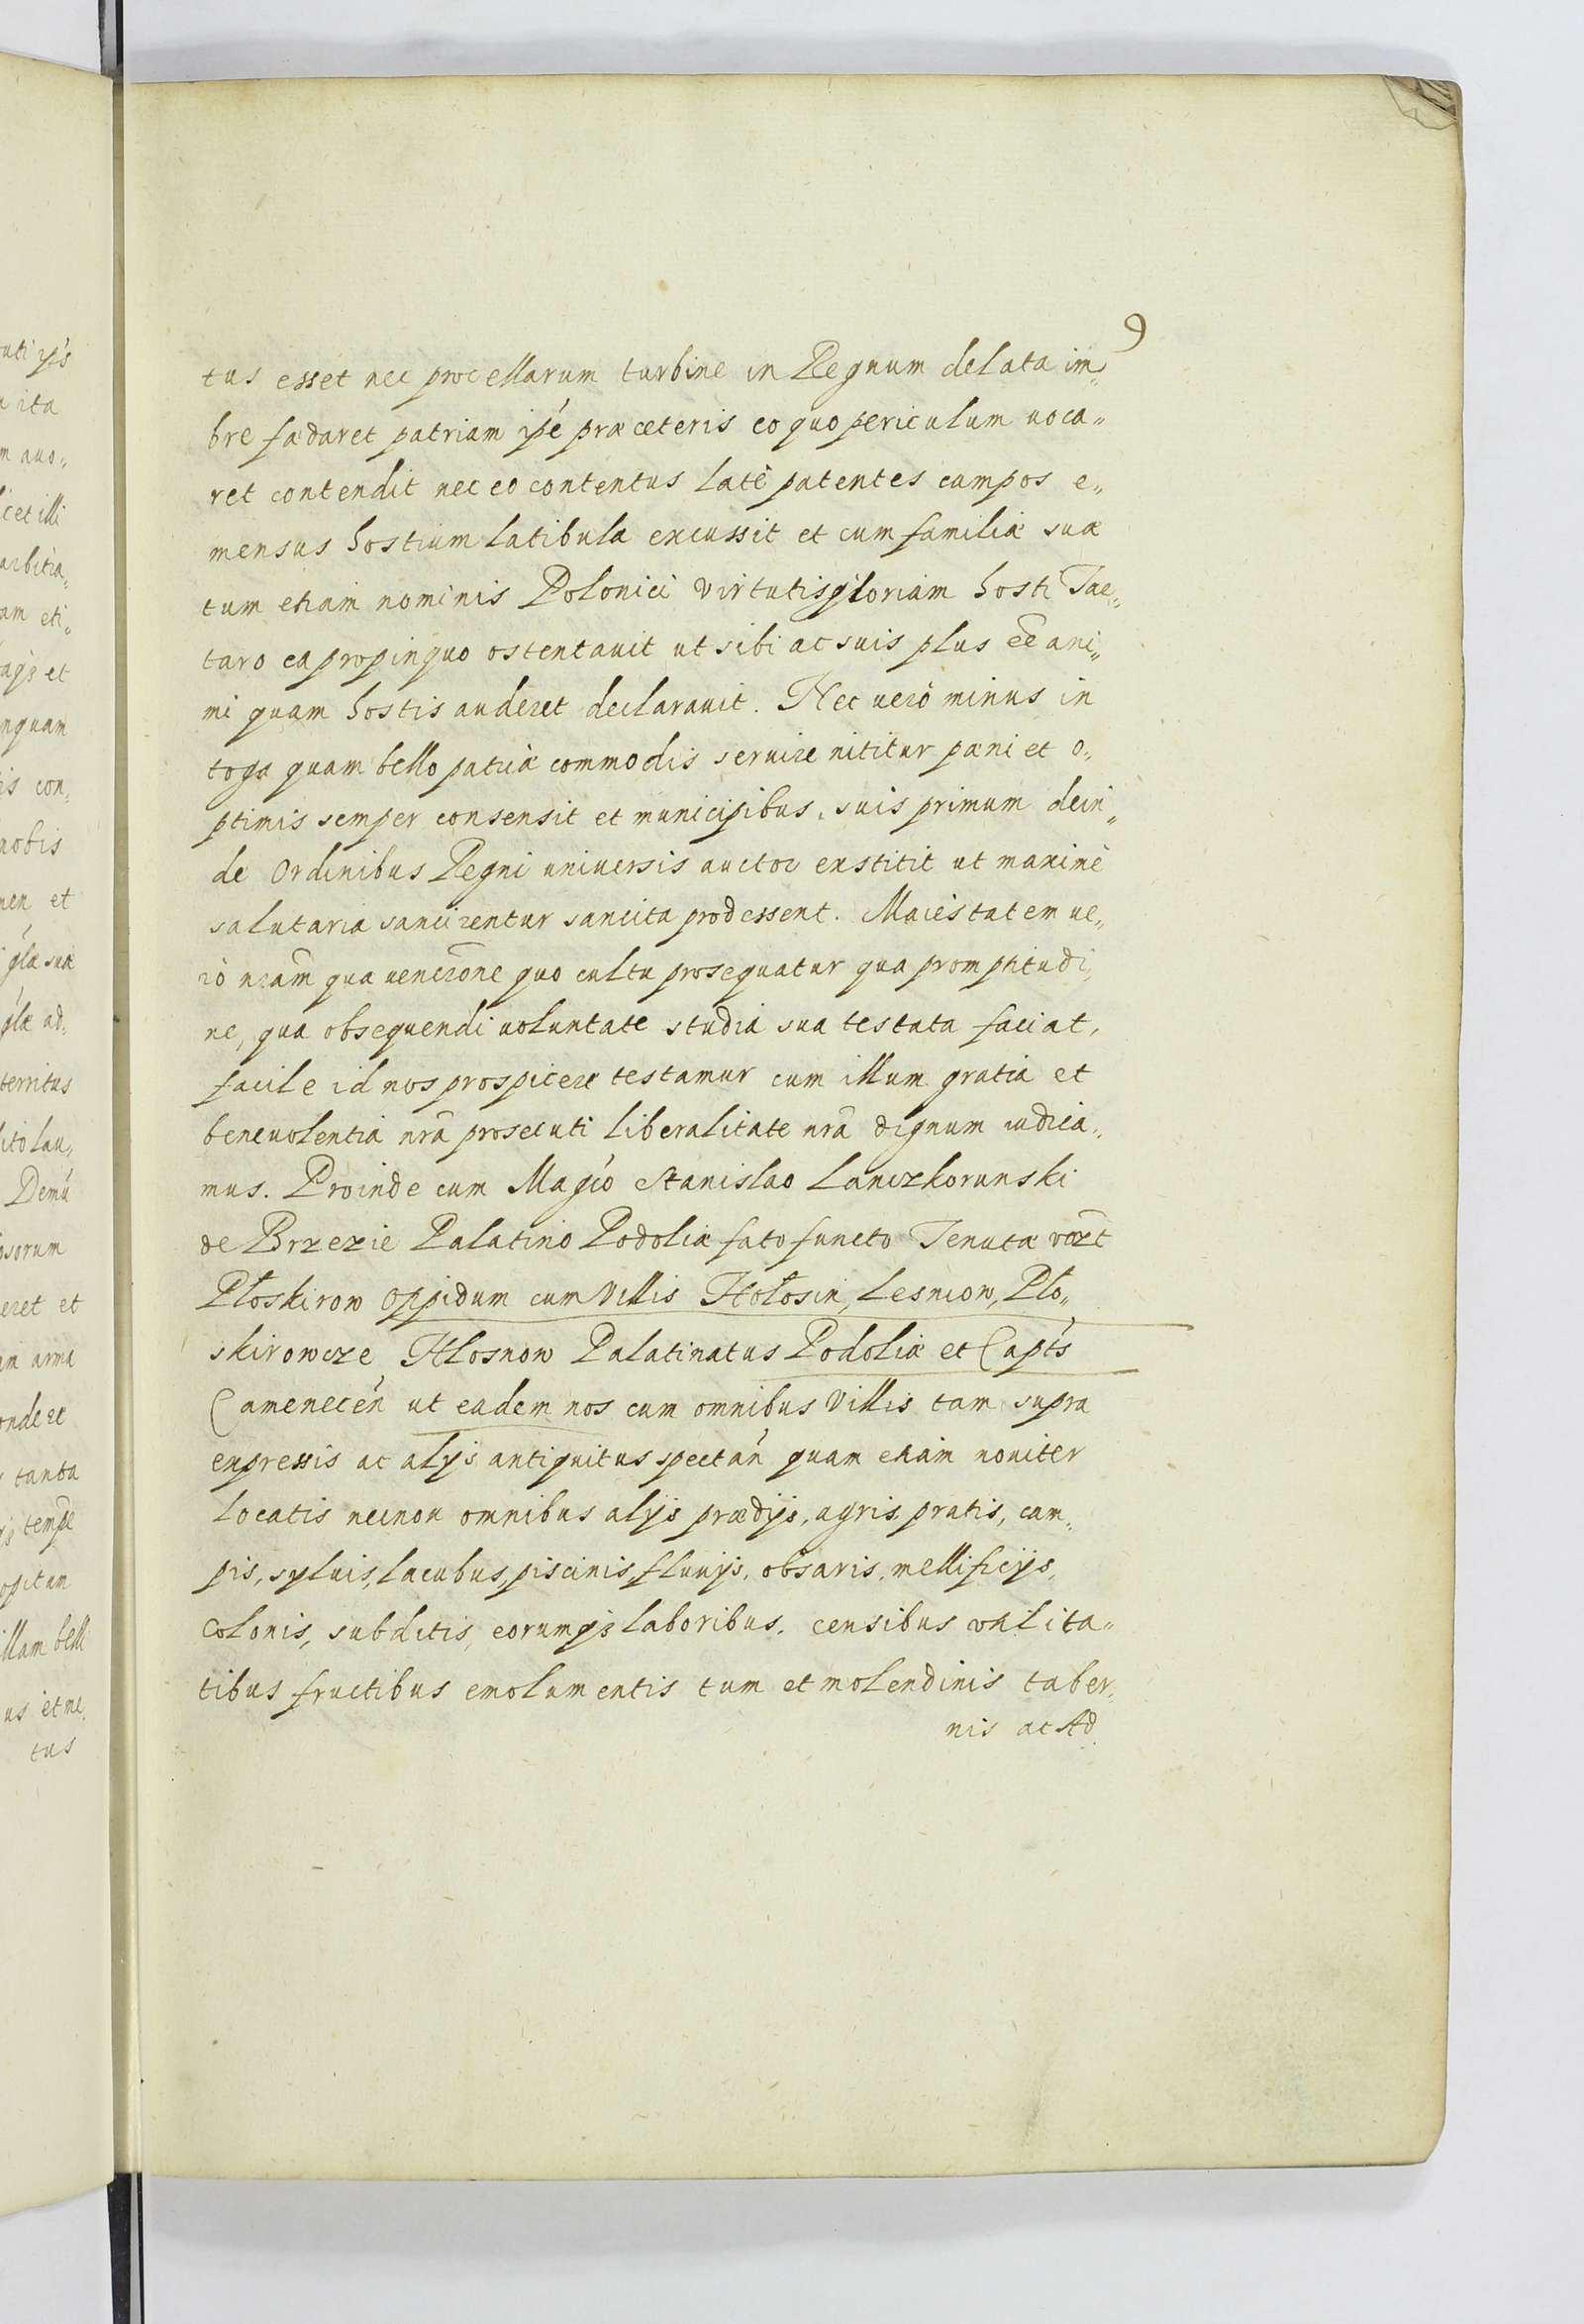 9
tus esset nec procellarum turbine in Regnum delata im„
bre fædaret patriam ipé præ ceteris eo quo periculum uoca„
ret contendit nec eo contentus latè patentes campos e„
mensus hostium latibula excussit et cum familiæ suæ
tum etiam nominis Polonici virtutis gloriam hosti Tar„
taro ea propinquo ostentauit ut sibi ac suis plus eē ani„
mi quam hostis auderet declarauit. Nec uerò minus in
toga quam bello patriæ commodis seruire nititur pæni et o„
ptimis semper consensit et municipibus suis primum dein„
de Ordinibus Regni uniuersis auctor exstitit ut maximè
salutaria sancirentur sancita prodessent. Maiestatem ue„
rò nrām qua uenerōne quo cultu prosequatur qua promptitudi„
ne, qua obsequendi uoluntate studia sua testata faciat,
facile id nos prospicere testamur cum illum gratia et
beneuolentia nrā prosecuti liberalitate nrā dignum iudica„
mus. Proinde cum Magco Stanislao Lanczkorunski
de Brzezie Palatino Podoliæ fato functo Tenuta
Płoskirow oppidum cum Villis Hołosin, Lesniow, Pło„
skirowcze Hlosnow Palatinatus Podoliæ et Capts
Camenecén ut eadem nos cum omnibus Villis tam supra
expressis ac alijs antiquitus spectań quam etiam nouiter
locatis necnon omnibus alijs prædijs, agris pratis, cam„
pis, syluis, lacubus, piscinis, fluuijs, obsaris, mellificijs,
colonis, subditis, eorumqs laboribus, censibus vtilita„
tibus fructibus emolumentis tum et molendinis taber„
nis ac Ad
uti ips
ita
m auo„
licet illi
arbitra„
am eti„
et
nquam
is con„
nobis
et
glæ suæ
glæ ad„
territus
lito lau„
Demú
osorum
eret et
am arma
onderet
tanta
tempē
ogitan
illam belli
us et me„
tus